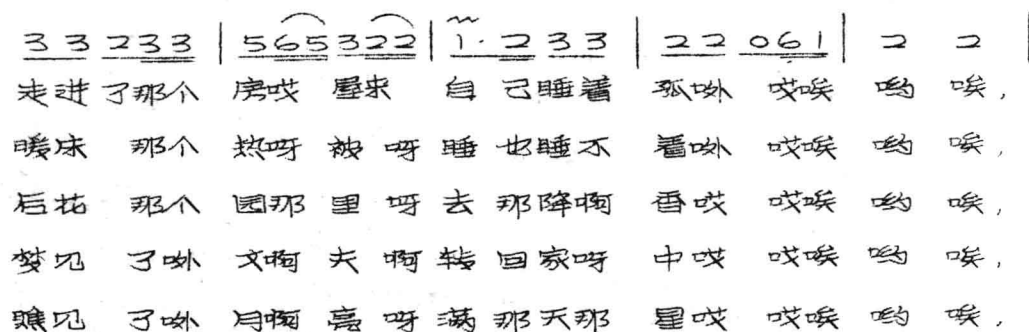 3 3 2 3 3 | 5 6 5 3 2 2 | 1· 2 3 3 | 2 2 0 6 1 | 2 2 |
走进了那个 房哎 屋来 自己睡着 孤呦 哎唉 哟 唉,
暖床 那个 热呀 被 呀 睡 也睡不 着呦 哎唉 哟 唉,
后花 那个 园那 里 呀 去 那降啊 香哎 哎唉 哟 唉,
梦见 了呦 丈啊 夫 啊 转 回家呀 中哎 哎唉 哟 唉,
瞧见 了呦 月啊 亮 呀 满 那天那 星哎 哎唉 哟 唉,